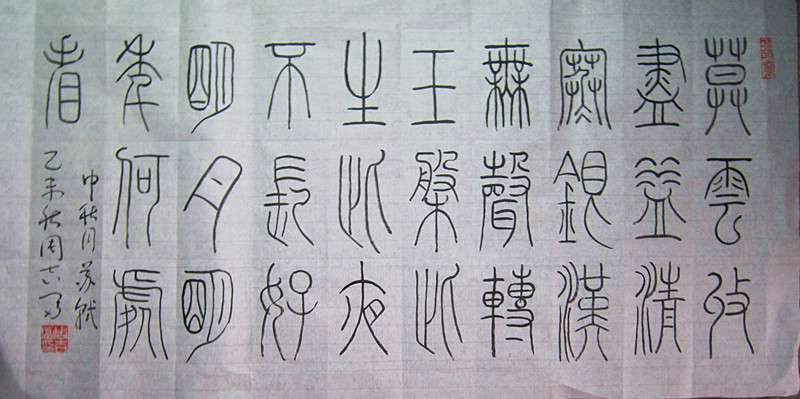 莫雲收
盡益清
寒銀漢
無聲轉
玉槃此
生此夜
不長好
明月明
年何處
看
中秋月 蘇軾
乙未秋周